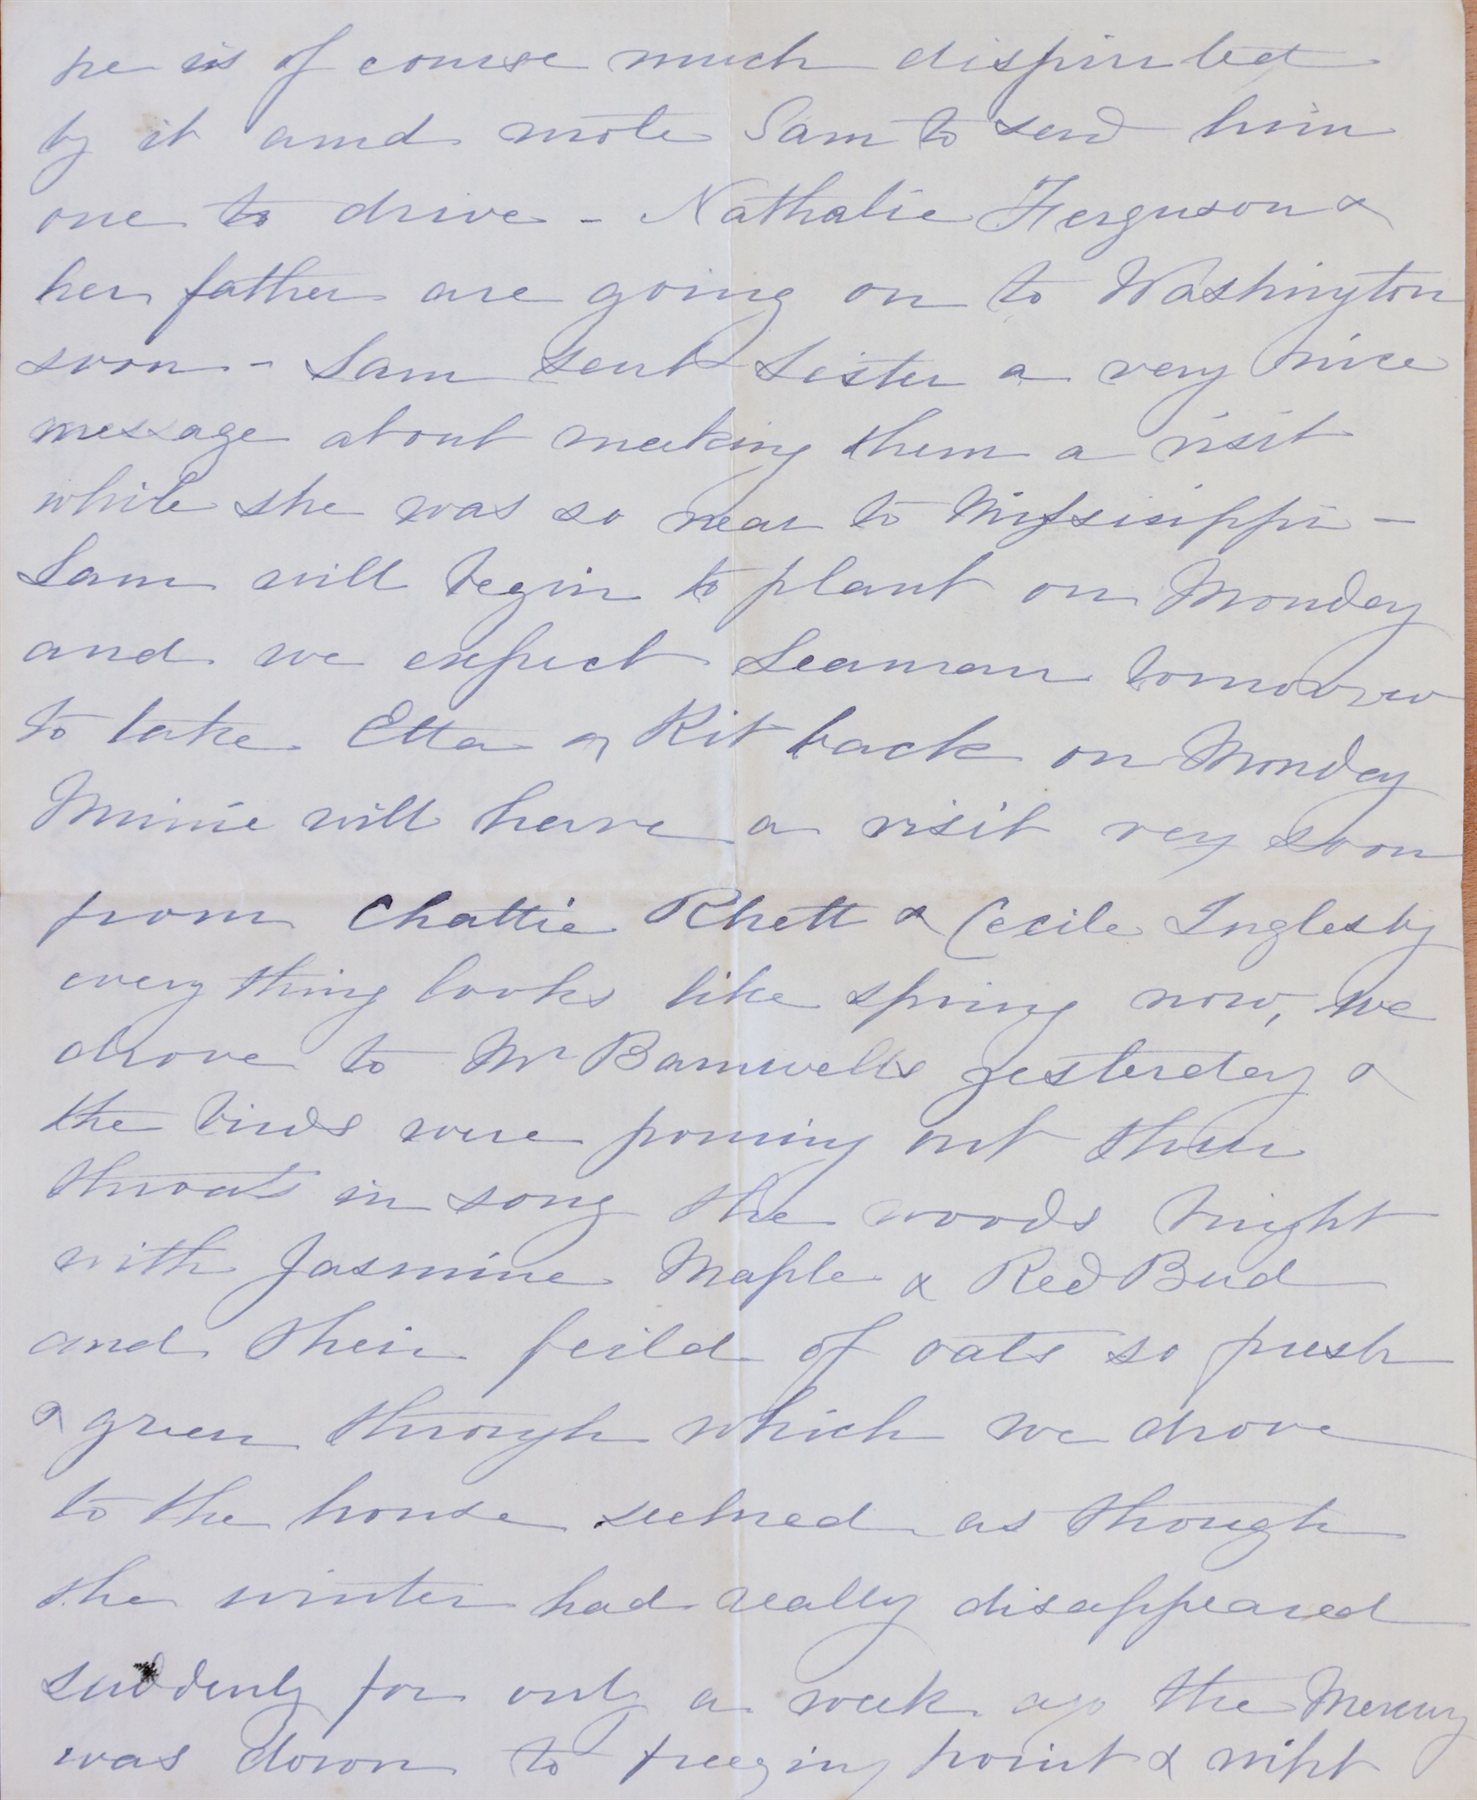 he is of course much dispirited
by it and wrote Sam to send him
one to drive - Nathalie Ferguson &
her father are going on to Washington
soon - Sam sent Sister a very nice
message about making them a visit
while she was so near to Mississippi -
Sam will begin to plant on Monday
and we expect Seaman tomorrow
to take Etta & Kit back on Monday
Minnie will have a visit very soon
from Chattie Rhett & Cecile Inglesby
every thing looks like spring now, we
drove to Mr Barnwells yesterday &
the birds were pouring out their
throats in song the woods bright
with Jasmine Maple & Red Bud
and their feild of oats so fresh
& green through which we drove
to the house seemed as though
the winter had really disappeared
suddenly for only a week ago the Mercury
was down to freezing point & nipt